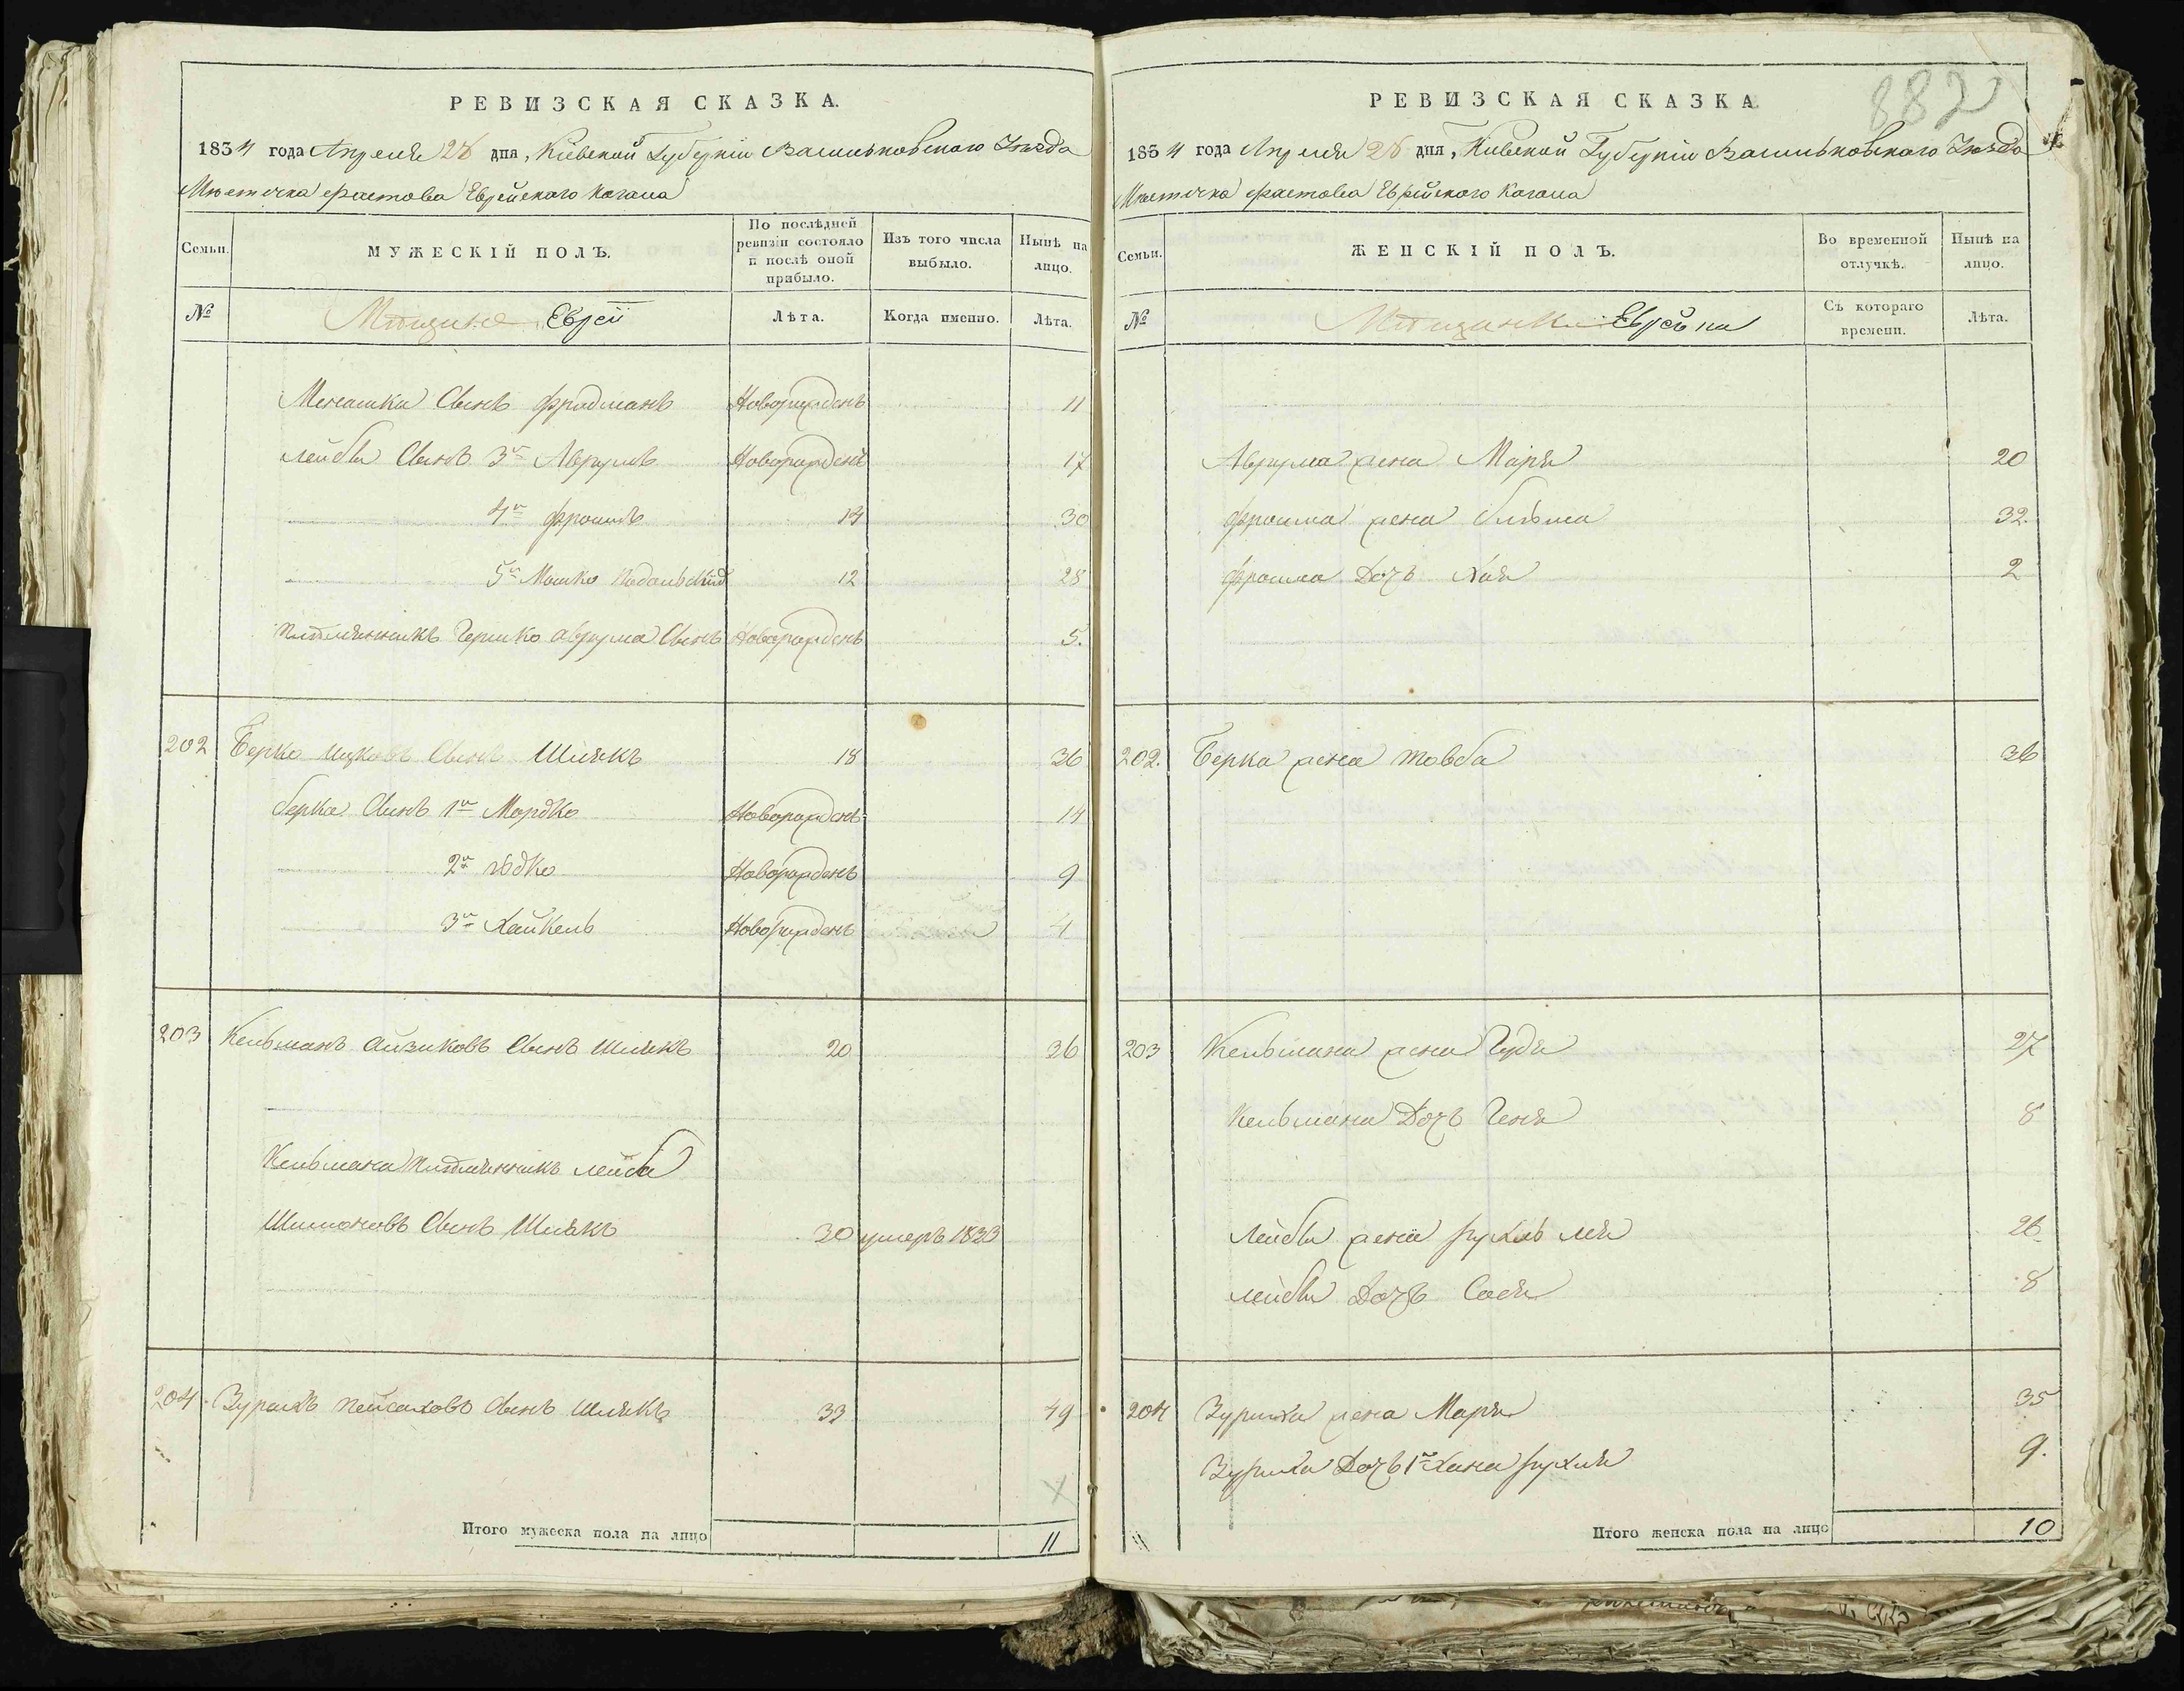 РЕВИЗСКАЯ СКАЗКА.
1834 года Апреля 28 дня, Кіевской Губерніи Васильковского Уезда
Местечка Фастова Еврейского Кагала
Семьи.
МУЖЕСКІЙ ПОЛЪ.
По послѣдней ревизіи состояло и послѣ оной прибыло.
Изъ того числа выбыло.
Нынѣ на лицо.
№
Мѣщане Евреи
Лѣта.
Когда именно.
Лѣта.
Менашка Сынъ Фродманъ Новорожденъ 11
Лейбы Сынъ 3й Аврумъ Новорожденъ 17
4й Фроимъ 14 30
5й Мошко Подольский 12 28
Племянникъ Гершко Аврума Сынъ Новорожденъ 5.
202 Берко Ицковъ Сынъ Шлякъ 18 36
Берка Сынъ 1й Мордко 
Новорожденъ 14
2й Юдко Новорожденъ 9
3й Хайкель Новорожденъ 4
203 Кельманъ Айзиковъ Сынъ Шлякъ 20 36
Кельмана Племянникъ Лейба
Шимоновъ Сынъ Шлякъ 30 умеръ 1833
204 Пейсаховъ Сынъ Шлякъ 33 49
Итого мужеска пола на лицо 11
882
РЕВИЗСКАЯ СКАЗКА
1834 года Апреля 28 дня, Кіевской Губерніи Васильковского Уезда
Местечка Фастова Еврейского Кагала
Семьи.
ЖЕНСКІЙ ПОЛЪ.
Во временной отлучкѣ.
Нынѣ на лицо.
№
Мѣщанки Еврейки
Съ котораго времени.
Лѣта.
Аврума жена Маря 20
Фроима жена 32.
Фроима Дочь Хая 2
202. Берка жена Товба 36
203 Кельмана жена Гудя 27
Кельмана Дочь Геня 8
Лейбы жена Рухль Лея 26
Лейбы Дочь Сося 8
204 жена Маря 35
Дочь 1я Хана Рухля 9.
Итого женска пола на лицо 10